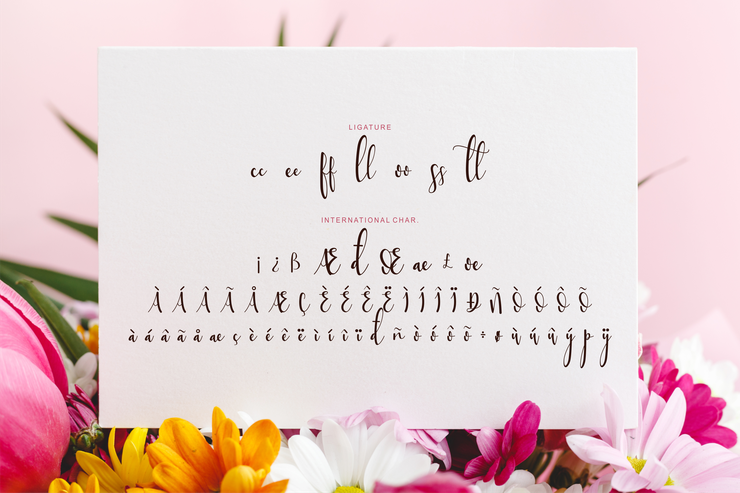 LIGATURE
cc ee ff ll oo ss tt
INTERNATIONAL CHAR.
¡ ¿ ß Æ đ Œ æ £ œ
À Á Â Ã Å Æ Ç È É Ê Ë Ì Í Î Ï Ð Ñ Ò Ó Ô Õ
à á â ã å æ ç è é ê ë ì í î ï đ ñ ò ó ô õ ÷ ø ù ú û ý þ ÿ